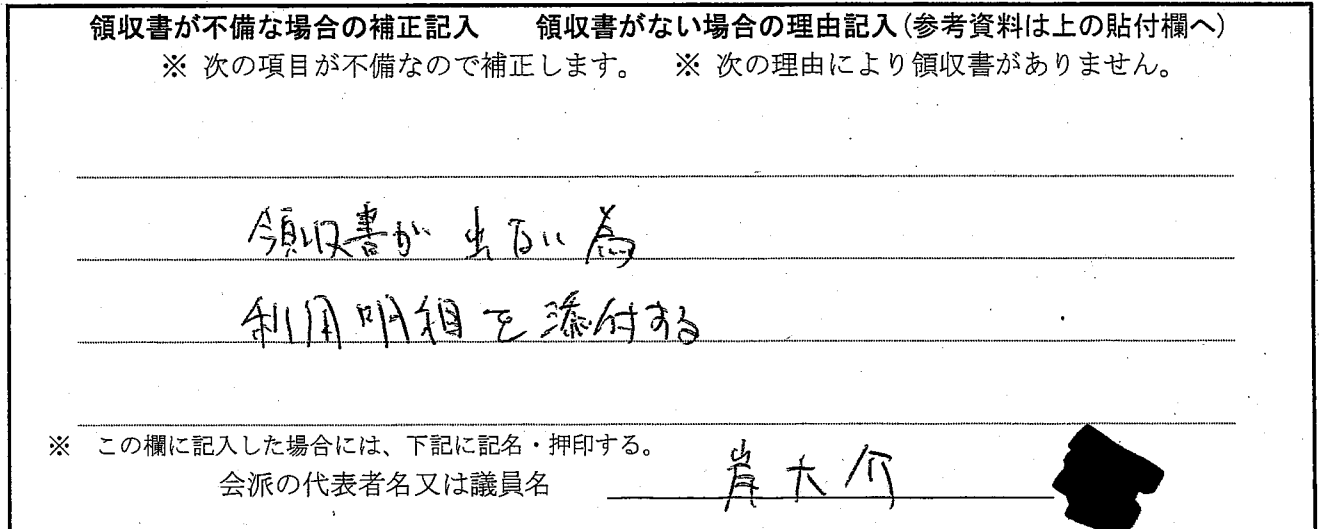 領収書が不備な場合の補正記入　　領収書がない場合の理由記入(参考資料は上の貼付欄へ)
※ 次の項目が不備なので補正します。　※ 次の理由により領収書がありません。
領収書が出ない為
利用明細を添付する
※　この欄に記入した場合には、下記に記名・押印する。
会派の代表者名又は議員名　岸大介